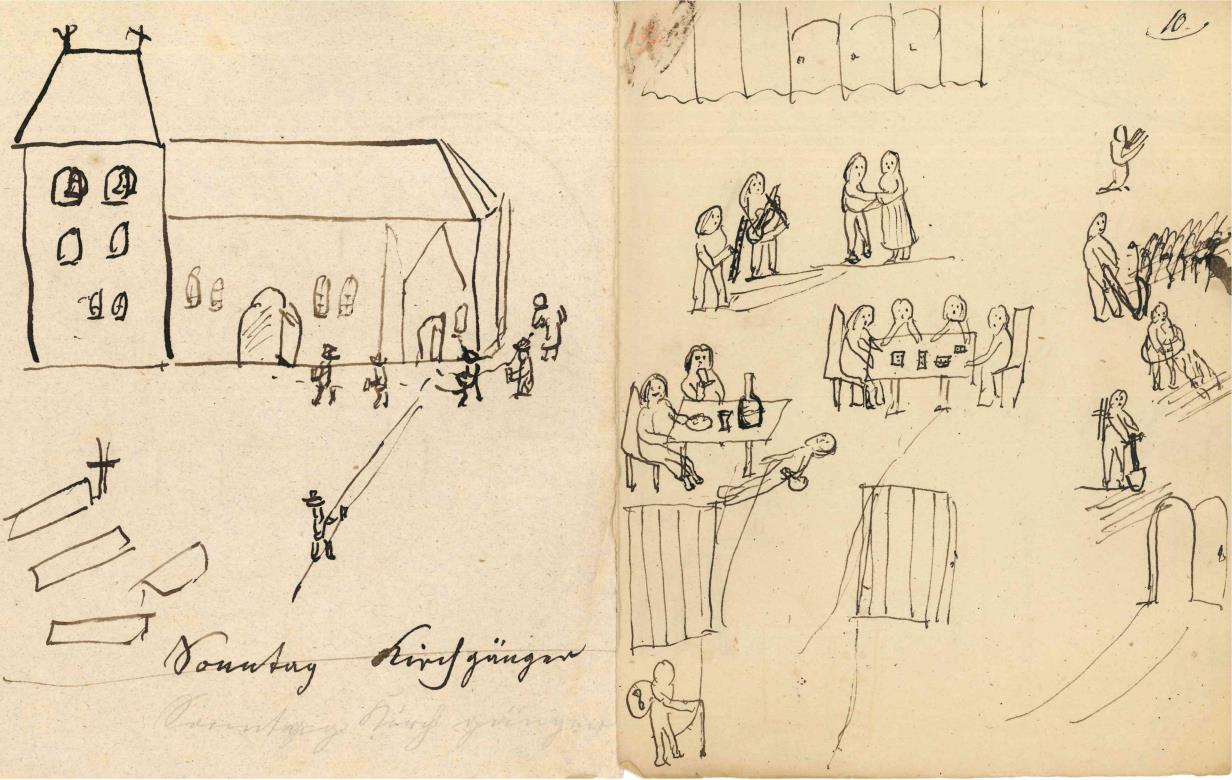 10.
Sonntag Kirchgänger
Sonntag Kirchgänger